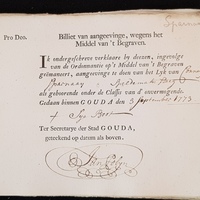 Pro Deo.
Billiet van aangeevinge, wegens het
Middel van 't Begraven.
IK ondergeschreve verklaare by deezen, ingevolge
van de Ordonnantie op 't Middel van 't Begraven
geëmaneert, aangeevinge te doen van het Lyk van
als gehoorende onder de Classis van d' onvermogende.
Gedaan binnen GOUDA den 3 September 1773
Ter Secretarye der Stad GOUDA,
geteekend op datum als boven.